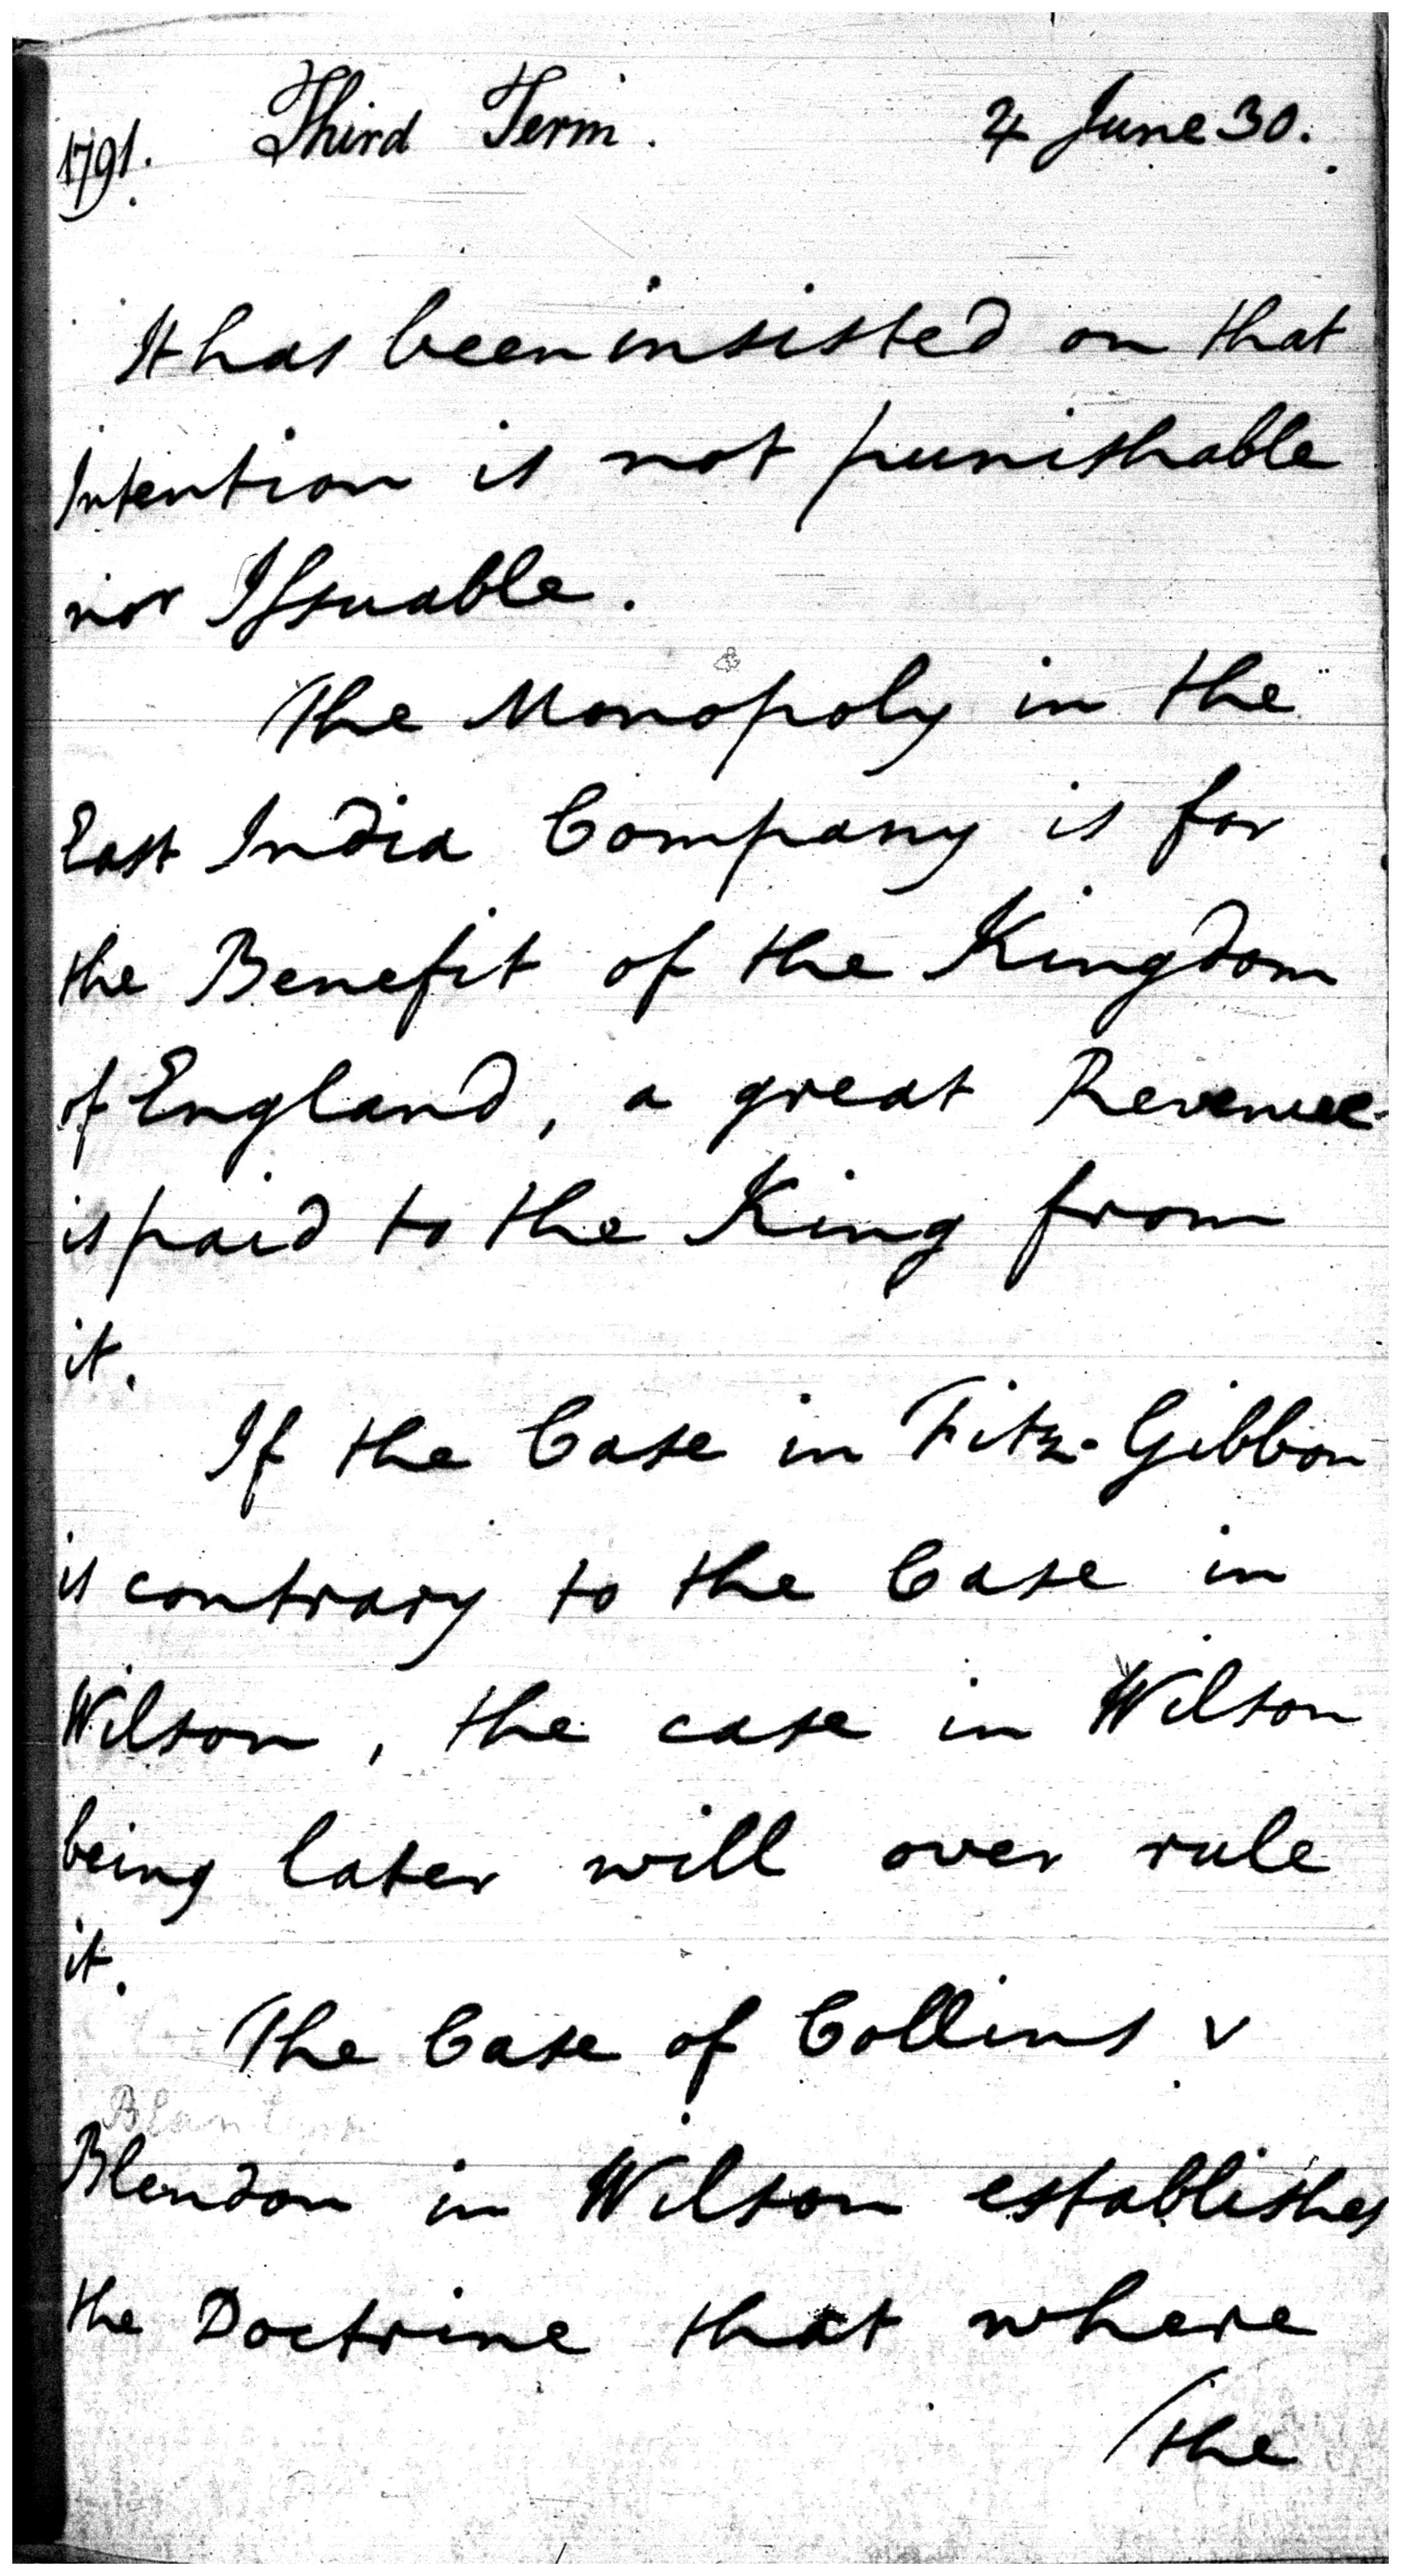 1791. Third Term. 4 June 30.
It has been insisted on that
Intention is not punishable
nor Issuable.
The Monopoly in the
East India Company is for
the Benefit of the Kingdom
of England, a great Revenue
is paid to the King from
it.
If the Case in Fitz-Gibbon
is contrary to the Case in
Wilson, the case in Wilson
being later will over rule
it.
The Case of Collins v
Blendon in Wilson establishes
the Doctrine that where
the